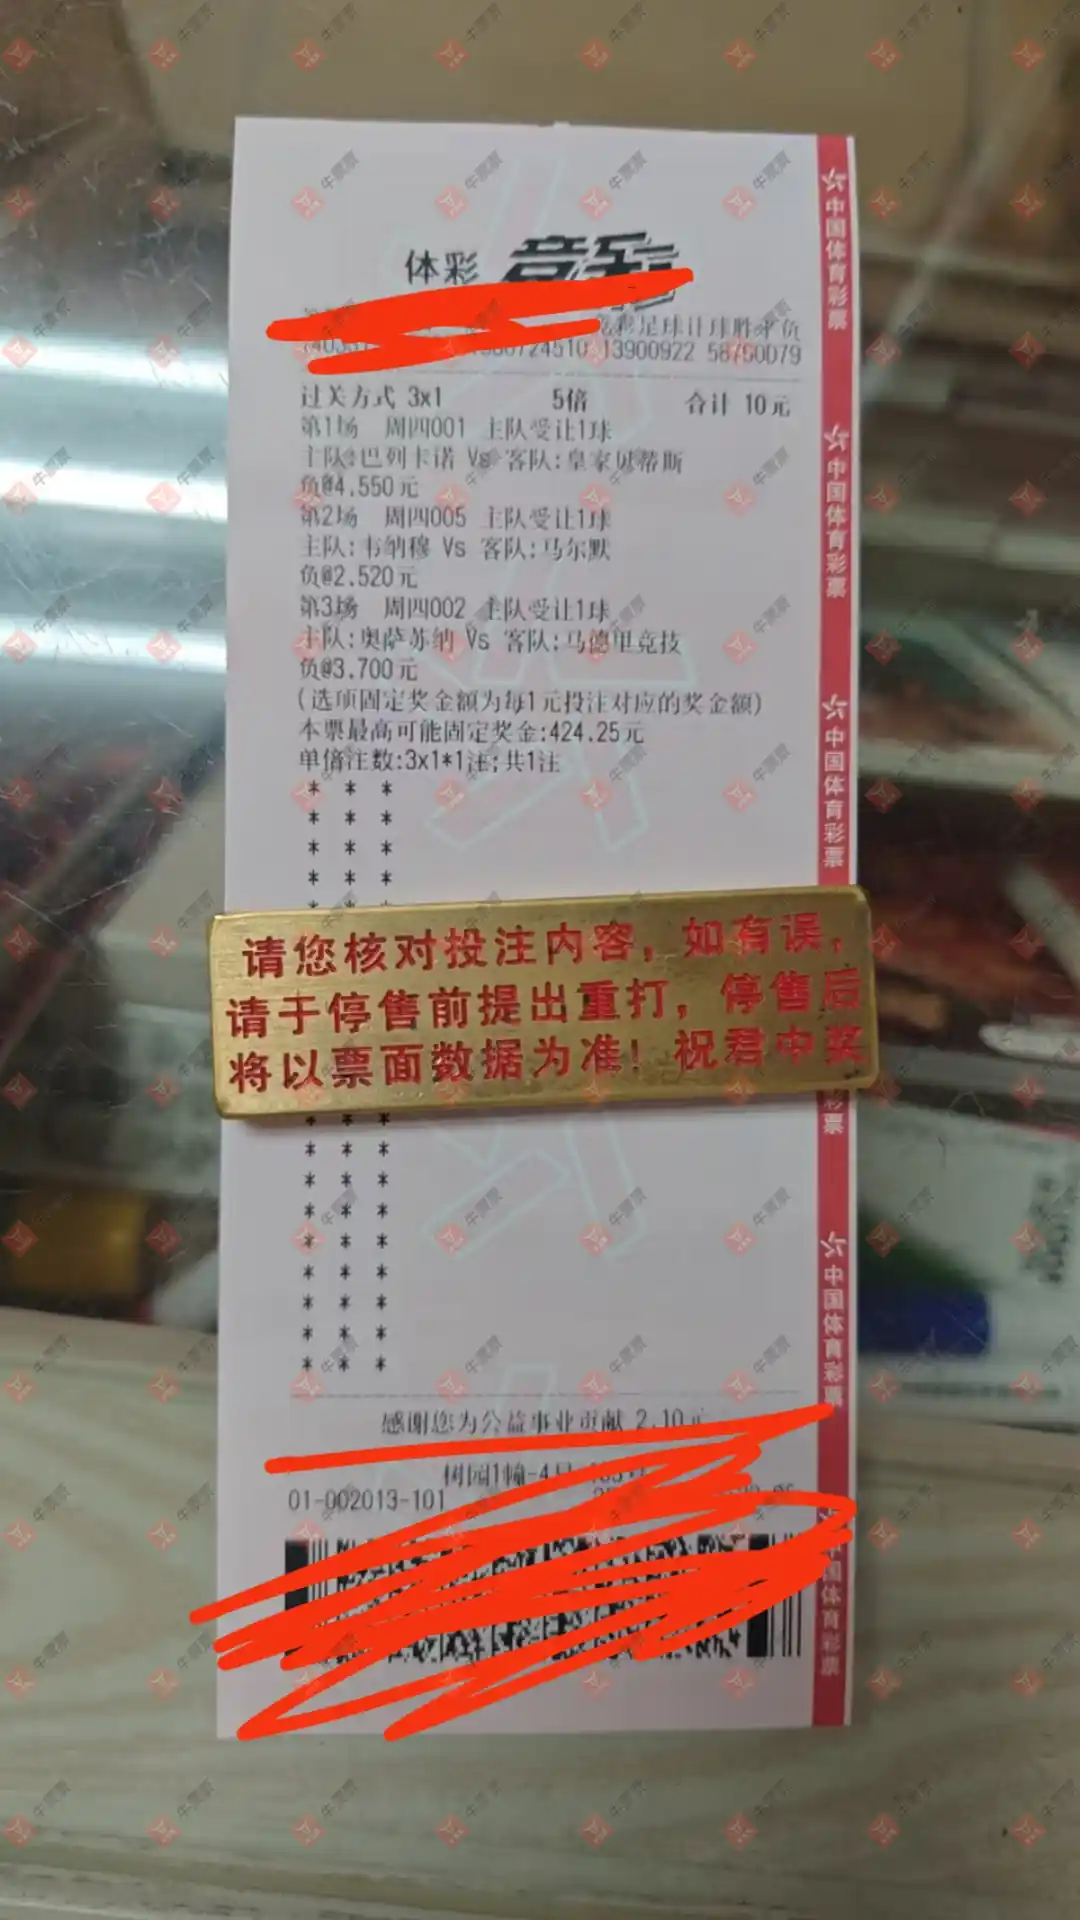 体彩 竞彩
竞彩足球让球胜平负
724510 13900922 58760079
过关方式 3x1 5倍 合计 10元
第1场 周四001 主队受让1球
主队:巴列卡诺 Vs 客队:皇家贝蒂斯
负@4.550元
第2场 周四005 主队受让1球
主队:韦纳穆 Vs 客队:马尔默
负@2.520元
第3场 周四002 主队受让1球
主队:奥萨苏纳 Vs 客队:马德里竞技
负@3.700元
(选项固定奖金额为每1元投注对应的奖金额)
本票最高可能固定奖金:424.25元
单倍注数:3x1*1注;共1注
* * *
* * *
* * *
* * *
请您核对投注内容，如有误，
请于停售前提出重打，停售后
将以票面数据为准！祝君中奖
* * *
* * *
* * *
* * *
* * *
* * *
* * *
* * *
* * *
感谢您为公益事业贡献 2.10元
树园1幢-4号
01-002013-101
中国体育彩票
中国体育彩票
中国体育彩票
彩票
中国体育彩票
中国体育彩票
牛票票